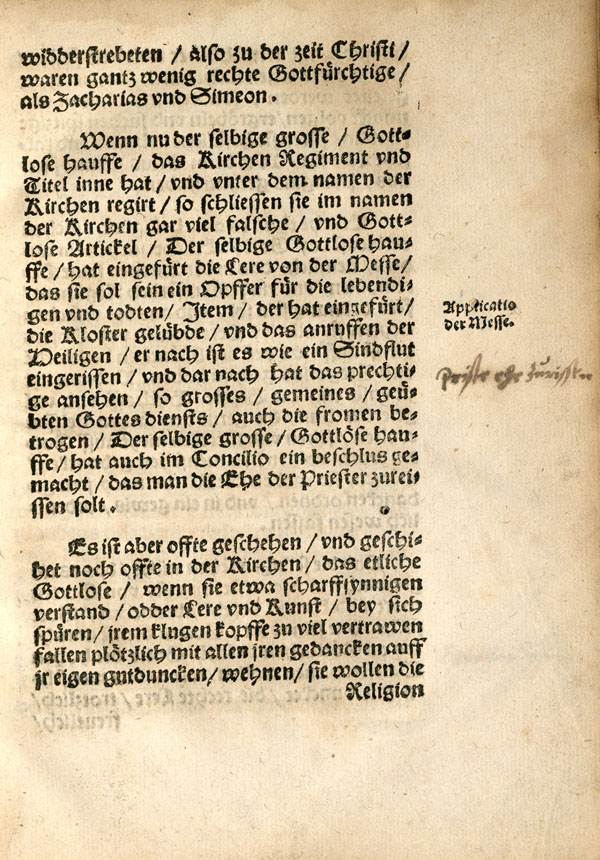 widderstrebeten / also zu der zeit Christi /
waren gantz wenig rechte Gottfürchtige /
als Zacharias vnd Simeon.
Wenn nu der selbige grosse / Gott-
lose hauffe / das Kirchen Regiment vnd
Titel inne hat / vnd vnter dem namen der
Kirchen regirt / so schliessen sie im namen
der Kirchen gar viel falsche / vnd Gott-
lose Artickel / Der selbige Gottlose hau-
ffe / hat eingefürt die Lere von der Messe /
das sie sol sein ein Opffer für die lebendi-
gen vnd todten / Item / der hat eingefürt /
die Kloster gelübde / vnd das anruffen der
Heiligen / er nach ist es wie ein Sindflut
eingerissen / vnd dar nach hat das prechti-
ge ansehen / so grosses / gemeines / geü-
bten Gottes diensts / auch die fromen be-
trogen / Der selbige grosse / Gottlöse hau-
ffe / hat auch im Concilio ein beschlus ge-
macht / das man die Ehe der Priester zurei-
ssen solt.
Applicatio
der Messe.
Es ist aber offte geschehen / vnd geschi-
het noch offte in der Kirchen / das etliche
Gottlose / wenn sie etwa scharffsynnigen
verstand / odder Lere vnd Kunst / bey sich
spüren / jrem klugen kopffe zu viel vertrawen
fallen plötzlich mit allen jren gedancken auff
jr eigen gutduncken / wehnen / sie wollen die
Religion